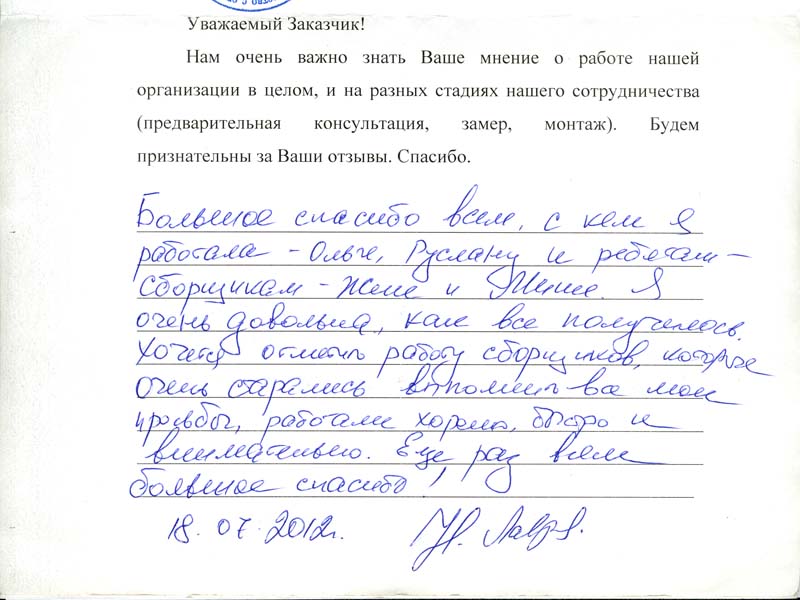 Уважаемый Заказчик!
Нам очень важно знать Ваше мнение о работе нашей
организации в целом, и на разных стадиях нашего сотрудничества
(предварительная консультация, замер, монтаж). Будем
признательны за Ваши отзывы. Спасибо.
Большое спасибо всем, с кем я
работала - Ольге, Руслану и ребятам -
сборщикам - Жене и Мише. Я
очень довольна, как все получилось.
Хочется отметить работу сборщиков, которые
очень старались выполнить все мои
просьбы, работали хорошо, быстро и
внимательно. Еще раз всем
большое спасибо!
18.07.2012г.